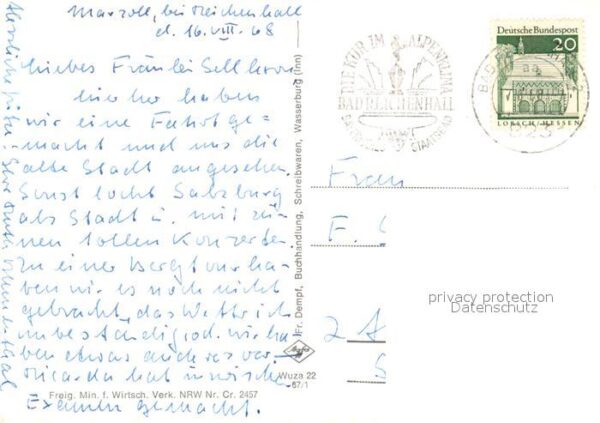 Marzoll, bei Reichenhall
d. 16. VIII. 68
Liebes Fräulei
hierher haben
wir eine Fahrt ge-
macht und uns die
alte Stadt angesehen.
Sonst lockt Salzburg
als Stadt u. mit
nen tollen Konzerten.
Zu einer Bergtour ha-
ben wir es noch nicht
gebracht, das Wetter ist
unbeständig, od. wir ha-
ben etwas anderes vor.
Ricarda hat
Examen gemacht.
Herzliche Grüße
Freig. Min. f. Wirtsch. Verk. NRW Nr. Cr. 2457
Fr. Dempf, Buchhandlung, Schreibwaren, Wasserburg (Inn)
Wuza 22
67/1
DIE KUR IM ALPENKLIMA
BAD REICHENHALL
BAYERISCHES STAATSBAD
Deutsche Bundespost
20
LORSCH/HESSEN
Frau
F.
2
privacy protection
Datenschutz